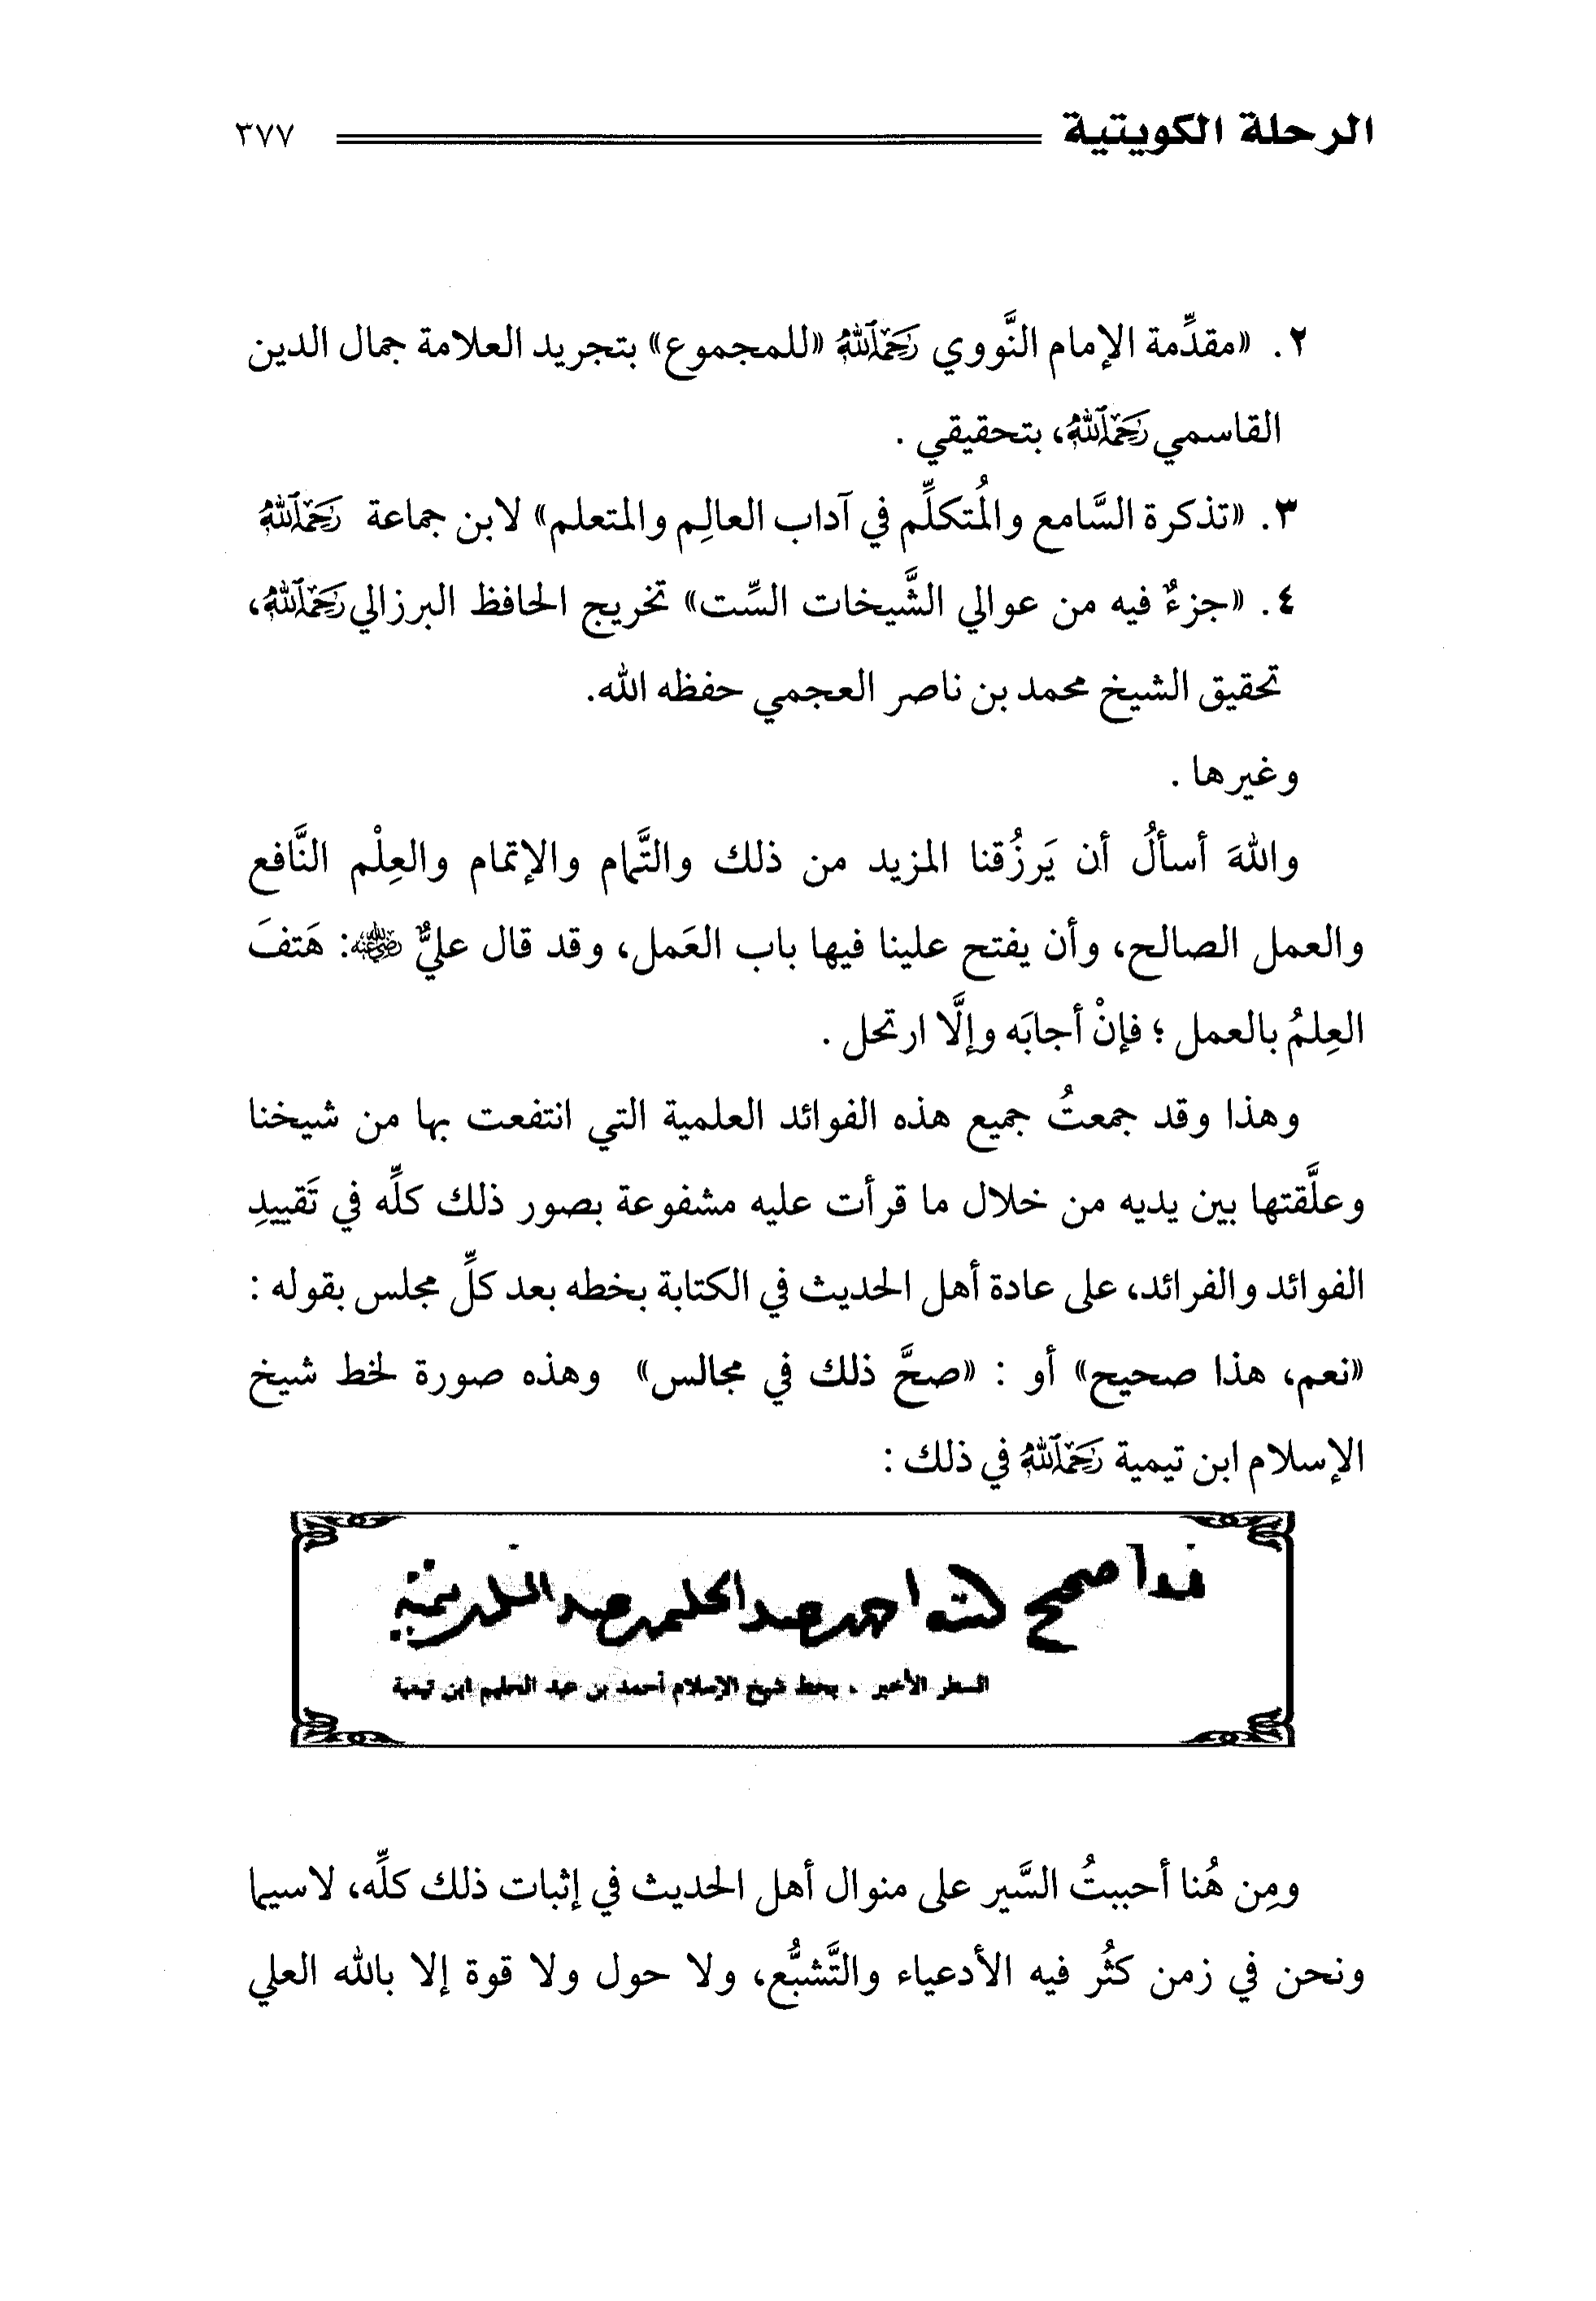 الرحلة الكويتية ٣٧٧
٢. «مقدِّمة الإمام النَّووي رَحِمَهُ ٱللَّهُ «للمجموع» بتجريد العلامة جمال الدين
القاسمي رَحِمَهُ ٱللَّهُ، بتحقيقي .
٣. «تذكرة السَّامع والمُتكلِّم في آداب العالِم والمتعلم» لابن جماعة رَحِمَهُ ٱللَّهُ
٤. «جزءٌ فيه من عوالي الشَّيخات السِّت» تخريج الحافظ البرزالي رَحِمَهُ ٱللَّهُ،
تحقيق الشيخ محمد بن ناصر العجمي حفظه الله.
وغيرها .
واللهَ أسألُ أن يَرزُقنا المزيد من ذلك والتَّمام والإتمام والعِلْم النَّافع
والعمل الصالح، وأن يفتح علينا فيها باب العَمل، وقد قال عليٌّ رضي الله عنه: هَتفَ
العِلمُ بالعمل ؛ فإنْ أجابَه وإلَّا ارتحل .
وهذا وقد جمعتُ جميع هذه الفوائد العلمية التي انتفعت بها من شيخنا
وعلَّقتها بين يديه من خلال ما قرأت عليه مشفوعة بصور ذلك كلِّه في تَقييدِ
الفوائد والفرائد، على عادة أهل الحديث في الكتابة بخطه بعد كلِّ مجلس بقوله :
«نعم، هذا صحيح» أو : «صحَّ ذلك في مجالس» وهذه صورة لخط شيخ
الإسلام ابن تيمية رَحِمَهُ ٱللَّهُ في ذلك :
هذا صحيح كتبه احمد بن عبد الحليم بن عبد السلام بن تيمية
السطر الأخير . بخط شيخ الإسلام أحمد بن عبد الحليم ابن تيمية
ومِن هُنا أحببتُ السَّير على منوال أهل الحديث في إثبات ذلك كلِّه، لاسيما
ونحن في زمن كثُر فيه الأدعياء والتَّشبُّع، ولا حول ولا قوة إلا بالله العلي